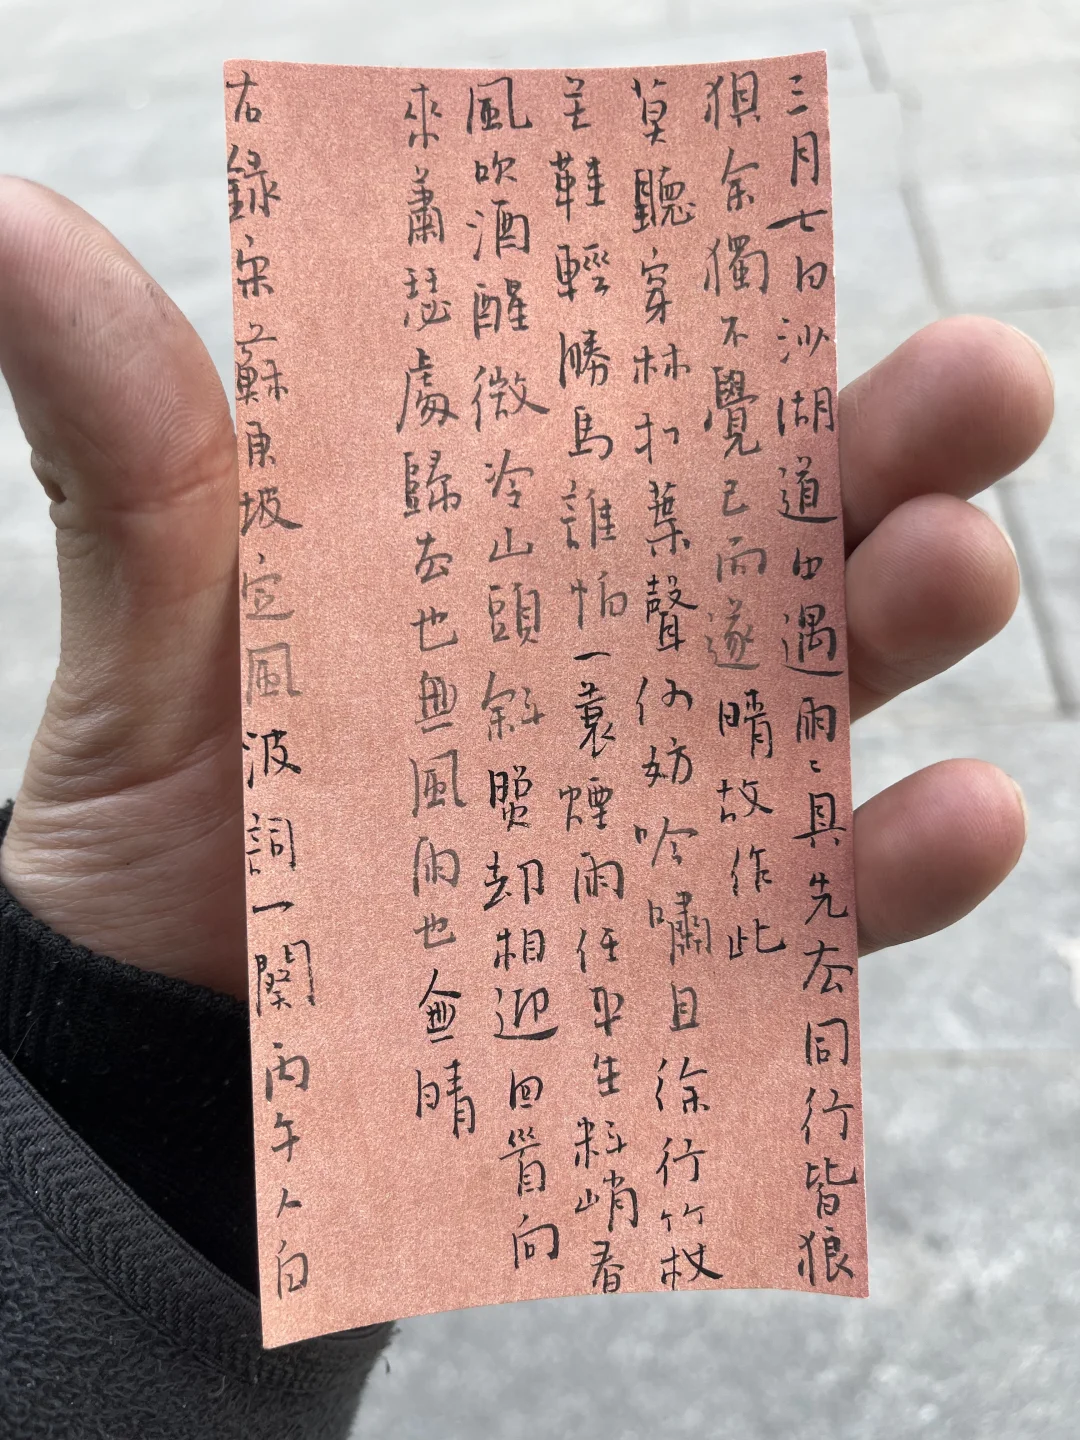 三月七日沙湖道中遇雨〻具先去同行皆狼
狽余獨不覺已而遂晴故作此
莫聽穿林打葉聲何妨吟嘯且徐行竹杖
芒鞋輕勝馬誰怕一蓑煙雨任平生料峭春
風吹酒醒微冷山頭斜照却相迎回首向
來蕭瑟處歸去也無風雨也無晴
右錄宋蘇東坡定風波詞一闋丙午人日